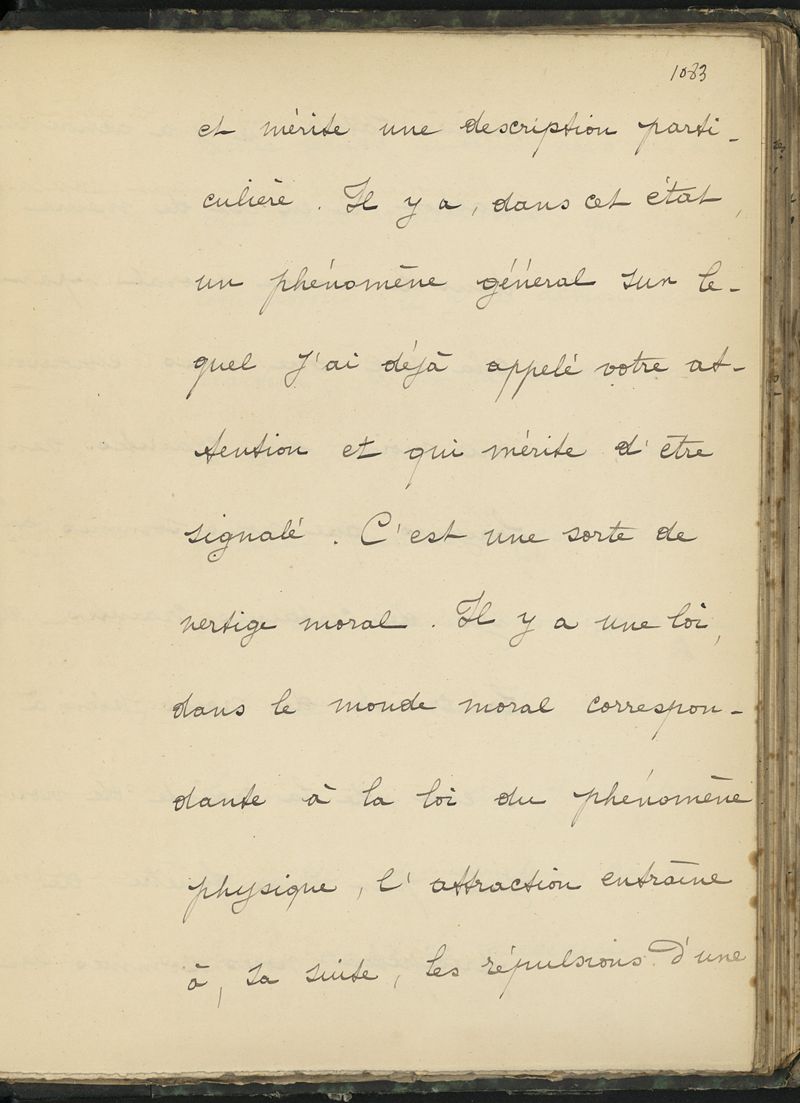 1083
et mérite une description parti-
culière. Il y a, dans cet état,
un phénomène général sur le-
quel j'ai déjà appelé votre at-
tention et qui mérite d'être
signalé. C'est une sorte de
vertige moral. Il y a une loi,
dans le monde moral correspon-
dante à la loi du phénomène
physique, l'attraction entraîne
à, sa suite, les répulsions d'une